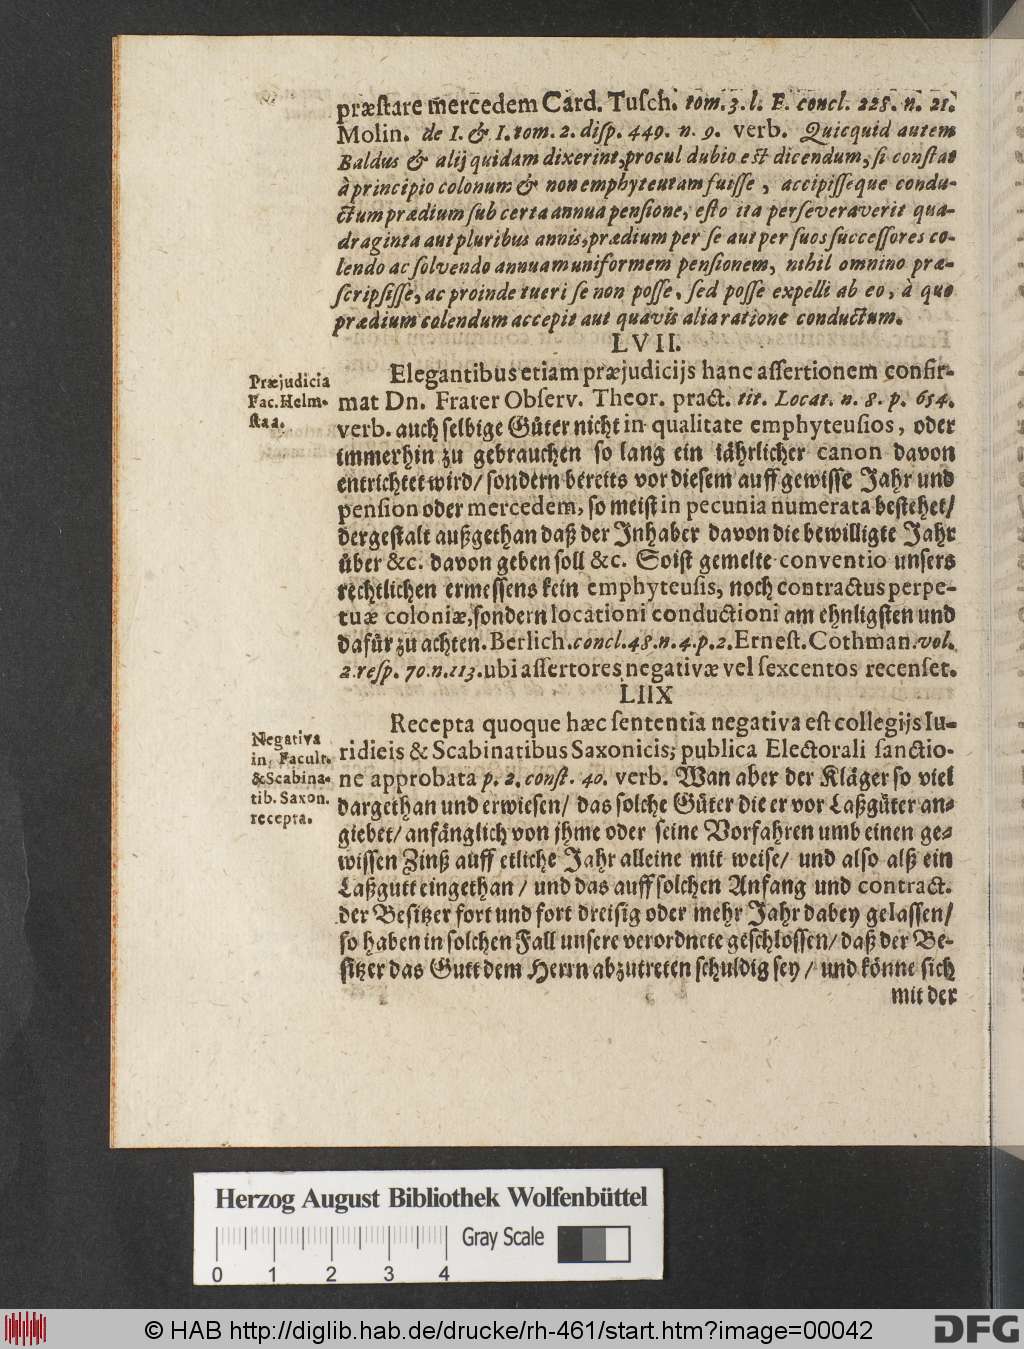 præstare mercedem Card. Tusch. tom. 3. l. E. concl. 228. n. 21.
Molin. de I. & I. tom. 2. disp. 449. n. 9. verb. Quicquid autem
Baldus & alij quidam dixerint, procul dubio est dicendum, si constat
à principio colonum & non emphyteutam fuisse, accipisseque condu-
ctum prædium sub certa annua pensione, esto ita perseveraverit qua-
draginta aut pluribus annis, prædium per se aut per suos successores co-
lendo ac solvendo annuam uniformem pensionem, nihil omnino præ-
scripsisse, ac proinde tueri se non posse, sed posse expelli ab eo, à quo
prædium colendum accepit aut quavis alia ratione conductum.
LVII.
Præjudicia
Fac. Helm-
staa.
Elegantibus etiam præjudicijs hanc assertionem confir-
mat Dn. Frater Observ. Theor. pract. tit. Locat. n. 8. p. 654.
verb. auch selbige Güter nicht in qualitate emphyteusios, oder
immerhin zu gebrauchen so lang ein iährlicher canon davon
entrichtet wird/ sondern bereits vor diesem auff gewisse Jahr und
pension oder mercedem, so meist in pecunia numerata bestehet/
dergestalt außgethan daß der Inhaber davon die bewilligte Jahr
über &c. davon geben soll &c. So ist gemelte conventio unsers
rechtlichen ermessens kein emphyteusis, noch contractus perpe-
tuæ coloniæ, sondern locationi conductioni am ehnligsten und
dafür zu achten. Berlich. concl. 48. n. 4. p. 2. Ernest. Cothman. vol.
2. resp. 70. n. 113. ubi assertores negativæ vel sexcentos recenset.
LIIX
Negativa
in Facult.
& Scabina-
tib. Saxon.
recepta.
Recepta quoque hæc sententia negativa est collegijs Iu-
ridicis & Scabinatibus Saxonicis, publica Electorali sanctio-
ne approbata p. 2. const. 40. verb. Wan aber der Kläger so viel
dargethan und erwiesen/ das solche Güter die er vor Laßgüter an-
giebet/ anfänglich von jhme oder seine Vorfahren umb einen ge-
wissen Zinß auff etliche Jahr alleine mit weise/ und also alß ein
Laßgutt eingethan/ und das auff solchen Anfang und contract.
der Besitzer fort und fort dreisig oder mehr Jahr dabey gelassen/
so haben in solchen Fall unsere verordnete geschlossen/ daß der Be-
sitzer das Gutt dem Herrn abzutreten schuldig sey/ und könne sich
mit der
Herzog August Bibliothek Wolfenbüttel
Gray Scale
0 1 2 3 4
© HAB http://diglib.hab.de/drucke/rh-461/start.htm?image=00042
DFG